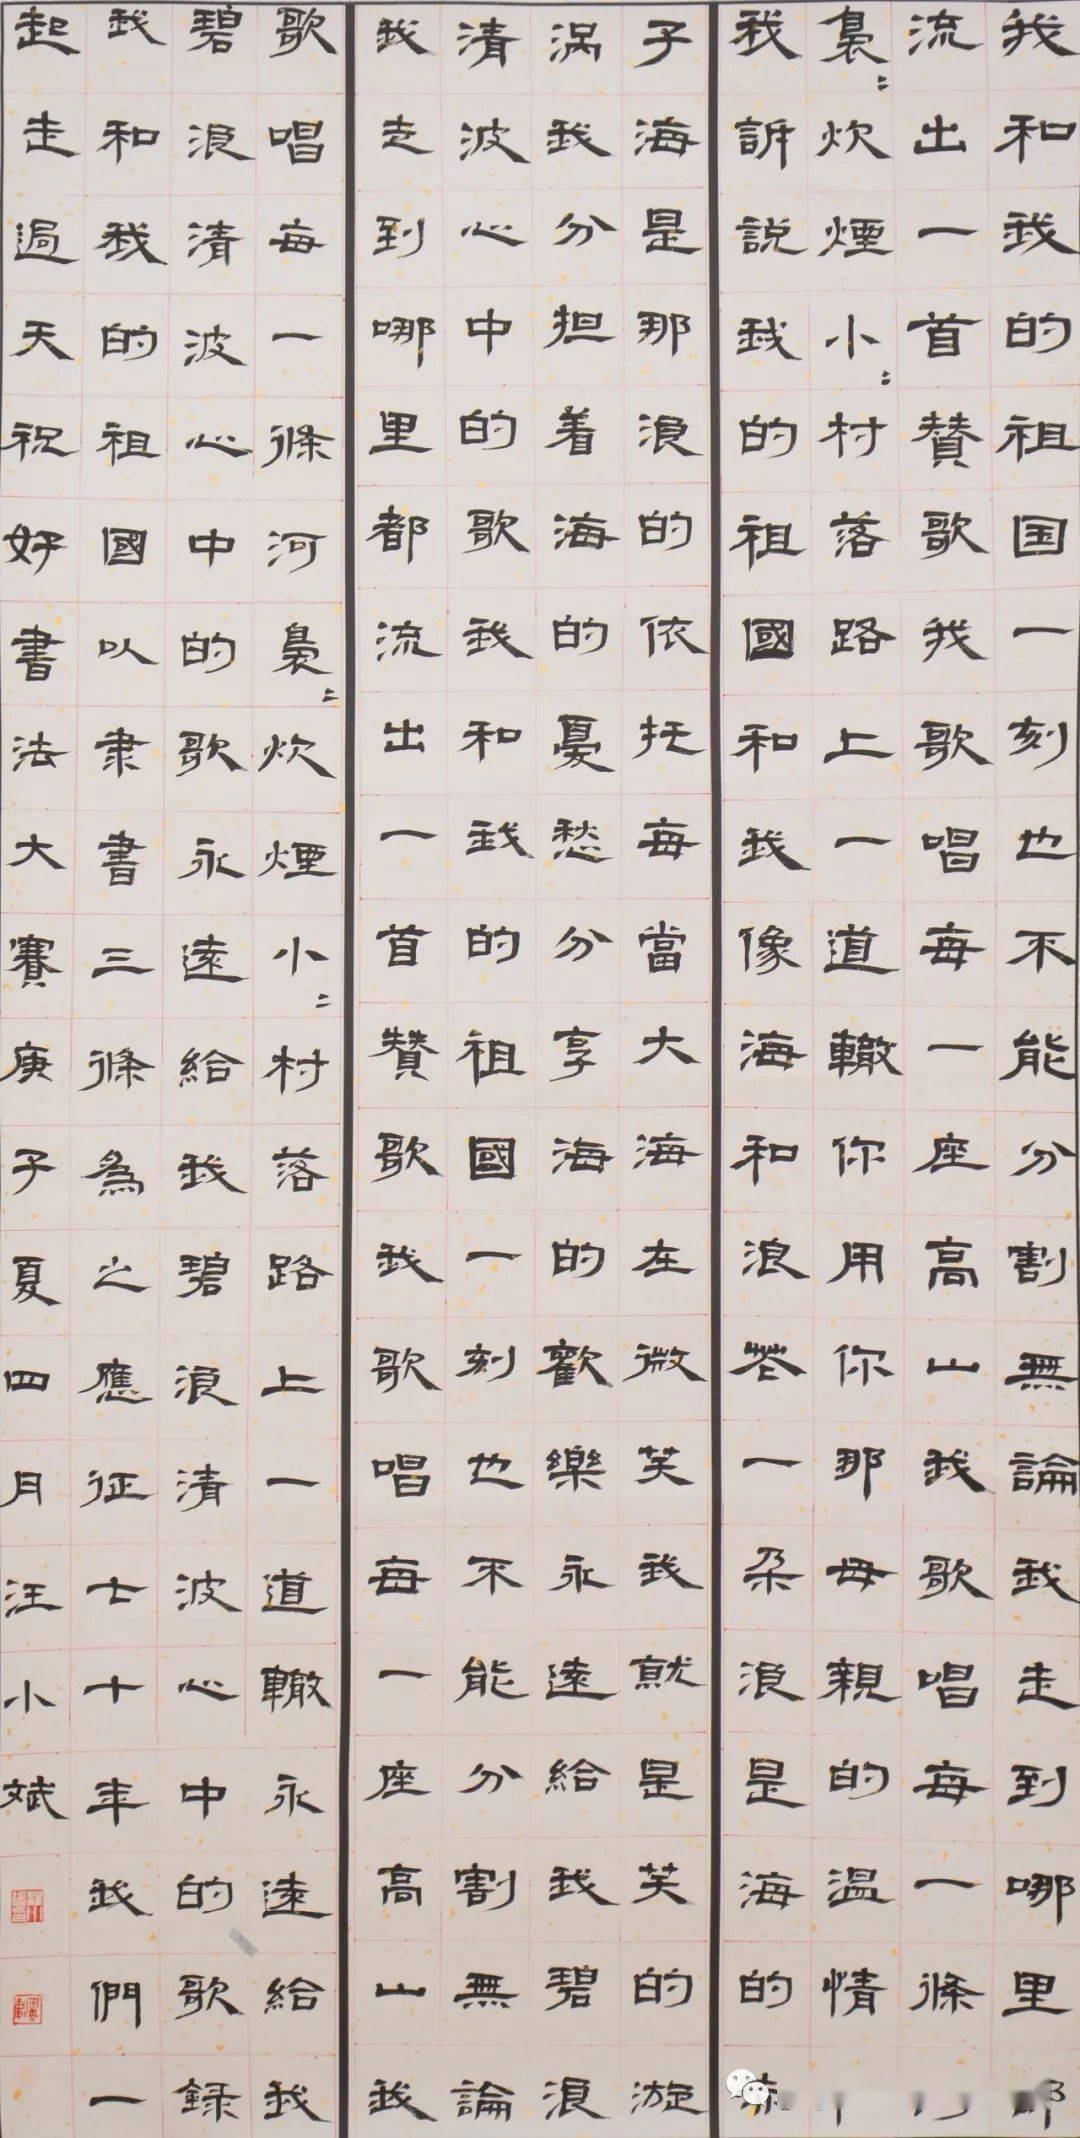 我和我的祖国一刻也不能分割無論我走到哪里
流出一首贊歌我歌唱每一座高山我歌唱每一條
裊〻炊煙小〻村落路上一道轍你用你那母親的温情
我訴説我的祖國和我像海和浪花一朵浪是海的
子海是那浪的依托每當大海在微笑我就是笑的漩
涡我分担着海的憂愁分享海的歡樂永遠給我碧浪
清波心中的歌我和我的祖國一刻也不能分割無論
我走到哪里都流出一首贊歌我歌唱每一座高山我
歌唱每一條河裊〻炊煙小〻村落路上一道轍永遠給我
碧浪清波心中的歌永遠給我碧浪清波心中的歌録
我和我的祖國以隶書三條為之應征士十年我們一
起走過天祝好書法大賽庚子夏四月汪小斌